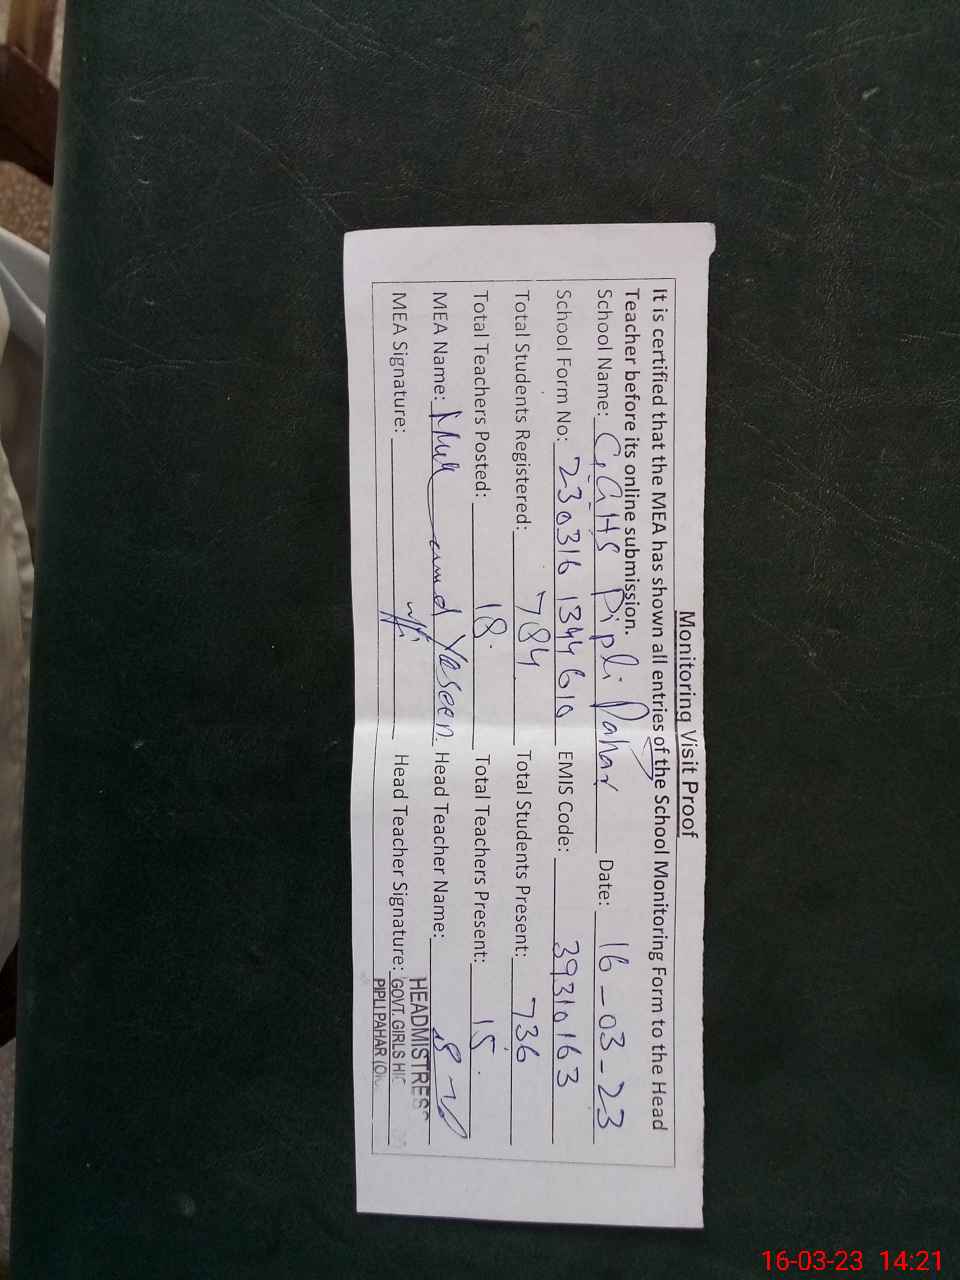 Monitoring Visit Proof
It is certified that the MEA has shown all entries of the School Monitoring Form to the Head
Teacher before its online submission.
School Name: G.GHS Pipli Pahar Date: 16-03-23
School Form No: 230316 1344610 EMIS Code: 39310163
Total Students Registered: 784 Total Students Present: 736
Total Teachers Posted: 18 Total Teachers Present: 15
MEA Name: Yaseen Head Teacher Name:
MEA Signature: Head Teacher Signature:
HEADMISTRESS
GOVT. GIRLS HIG
PIPLI PAHAR (OK
16-03-23 14:21